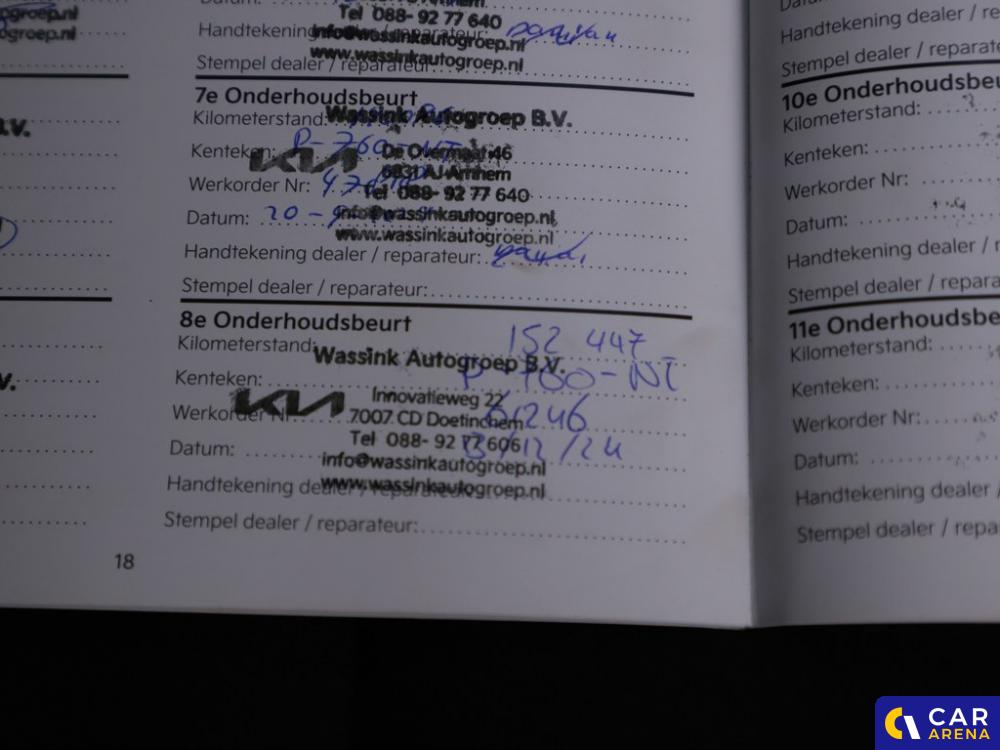 groep.nl
ogroep.nl
B.V.
V.
Datum:
Tel 088- 92 77 640
Handtekening dealer / reparateur:
info@wassinkautogroep.nl
www.wassinkautogroep.nl
Stempel dealer / reparateur:
7e Onderhoudsbeurt
Kilometerstand:
Wassink Autogroep B.V.
Kenteken: P-760-NT
KIA
De Overmaat 46
6831 AJ Arnhem
Werkorder Nr:
Tel 088- 92 77 640
Datum: 20-9
info@wassinkautogroep.nl
www.wassinkautogroep.nl
Handtekening dealer / reparateur:
Stempel dealer / reparateur:
8e Onderhoudsbeurt
Kilometerstand: 152 447
Wassink Autogroep B.V.
Kenteken: P-760-NT
KIA
Innovatieweg 22
Werkorder Nr:
7007 CD Doetinchem
Tel 088- 92 77 606
Datum: /12/24
info@wassinkautogroep.nl
Handtekening dealer / reparateur:
www.wassinkautogroep.nl
Stempel dealer / reparateur:
18
Datum:
Handtekening dealer / re
Stempel dealer / reparate
10e Onderhoudsbeu
Kilometerstand:
Kenteken:
Werkorder Nr:
Datum:
Handtekening dealer / r
Stempel dealer / repara
11e Onderhoudsbe
Kilometerstand:
Kenteken:
Werkorder Nr:
Datum:
Handtekening dealer /
Stempel dealer / repa
CAR
ARENA